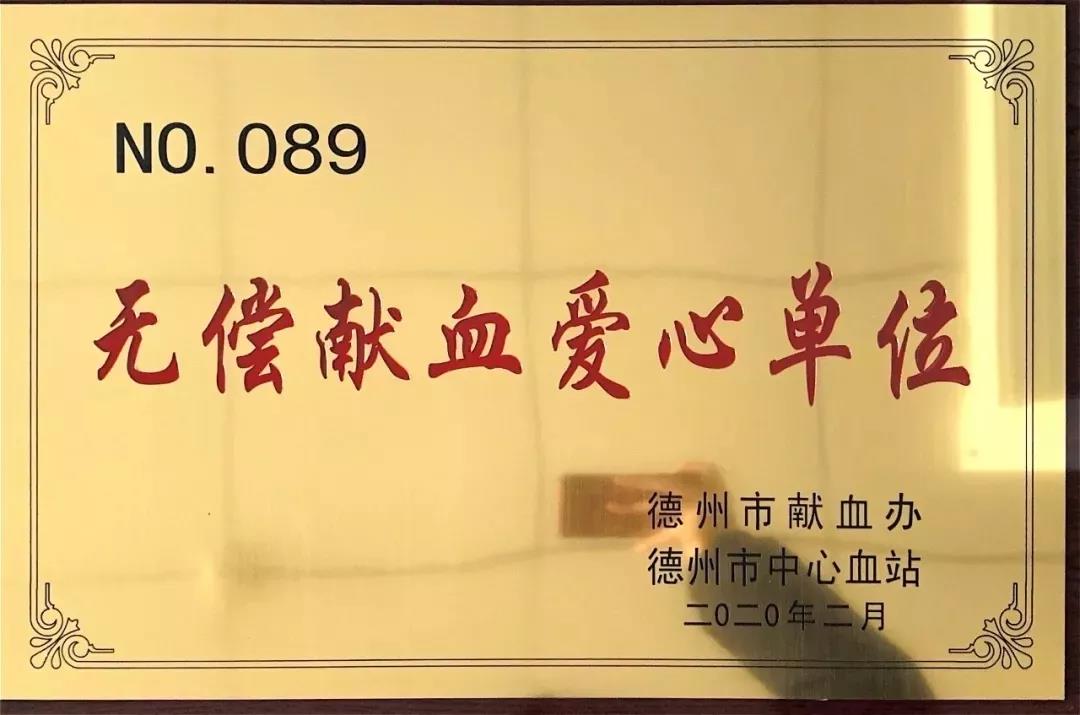 NO.089
无偿献血爱心单位
德州市献血办
德州市中心血站
二0二0年二月